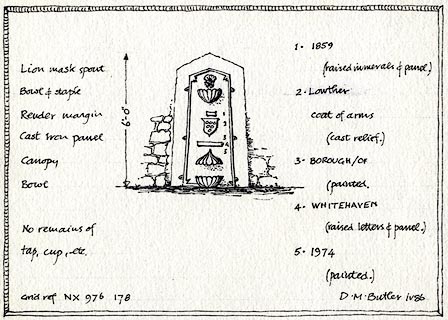 Lion mask spout
Bowl & staple
Render margin
Cast Iron panel
Canopy
Bowl
No remains of
tap, cup, etc.
Grid ref NX 976 178
6'-0"
1
2
3
4
5
1. 1859
(raised numerals & panel)
2. Lowther
coat of arms
(cast relief.)
3. BOROUGH/OF
(painted.
4. WHITEHAVEN
(raised letters & panel.)
5. 1974
(painted.)
D.M.Butler iv86